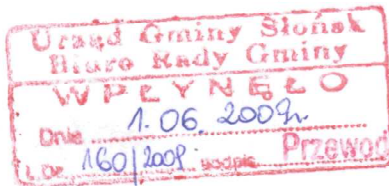 Urząd Gminy Słońsk
Biuro Rady Gminy
WPŁYNĘŁO
Dnia 1.06.2009r.
L.Dz. 160/2009 podpis Przewod